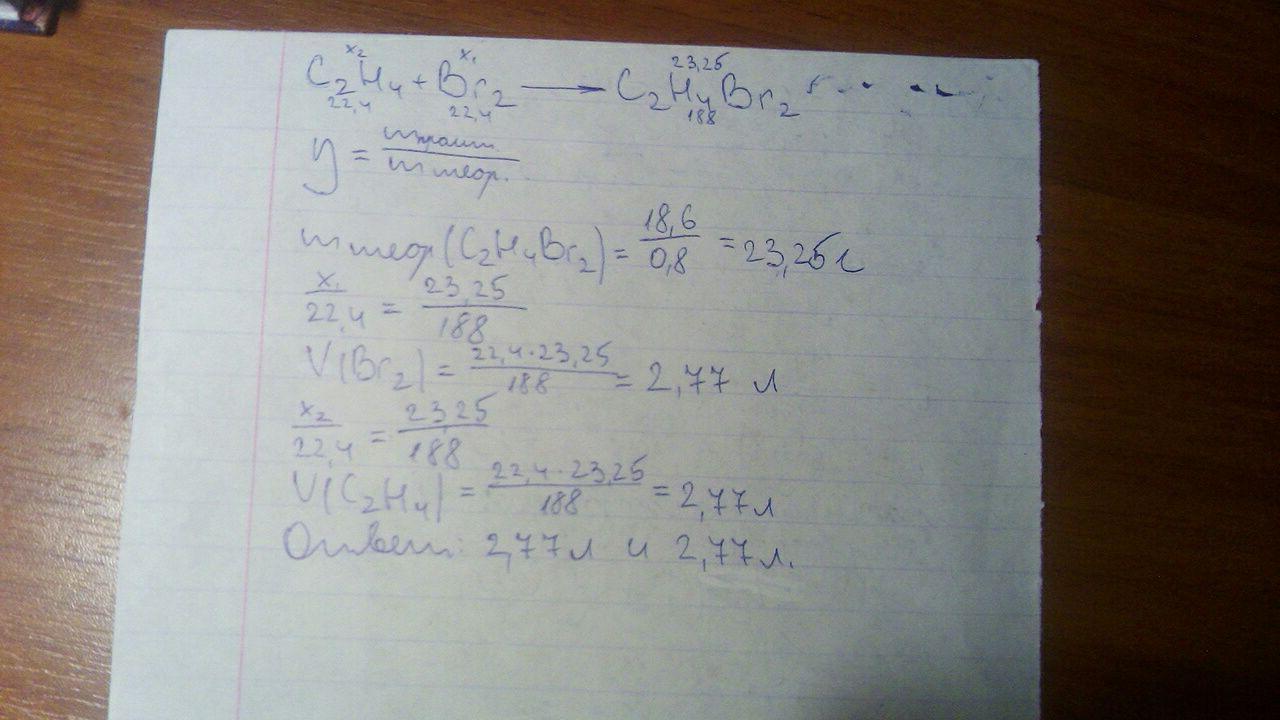 x₂ x₁ 23,25
C₂H₄ + Br₂ ⟶ C₂H₄Br₂
22,4 22,4 188
y = mпракт. / mтеор.
mтеор(C₂H₄Br₂) = 18,6 / 0,8 = 23,25г
x₁ / 22,4 = 23,25 / 188
V(Br₂) = 22,4 · 23,25 / 188 = 2,77 л
x₂ / 22,4 = 23,25 / 188
V(C₂H₄) = 22,4 · 23,25 / 188 = 2,77л
Ответ: 2,77л и 2,77л.